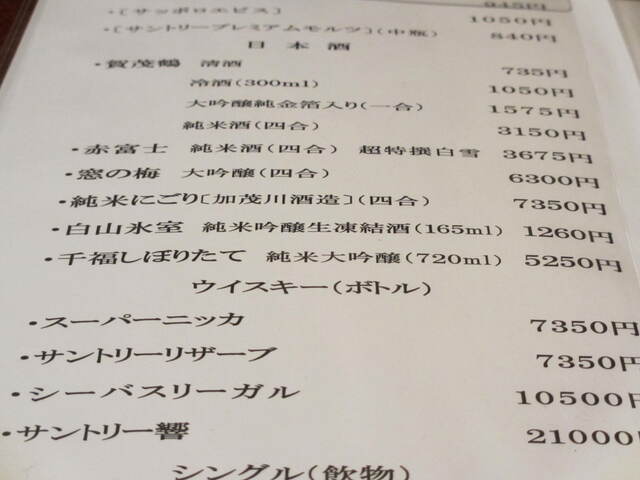 ・〔サッポロエビス〕 945円
・〔サントリープレミアムモルツ〕(中瓶) 1050円
840円
日本酒
・賀茂鶴 清酒 735円
冷酒(300ml) 1050円
大吟醸純金箔入り(一合) 1575円
純米酒(四合) 3150円
・赤富士 純米酒(四合) 超特撰白雪 3675円
・窓の梅 大吟醸(四合) 6300円
・純米にごり〔加茂川酒造〕(四合) 7350円
・白山氷室 純米吟醸生凍結酒(165ml) 1260円
・千福しぼりたて 純米大吟醸(720ml) 5250円
ウイスキー(ボトル)
・スーパーニッカ 7350円
・サントリーリザーブ 7350円
・シーバスリーガル 10500円
・サントリー響 21000円
シングル(飲物)